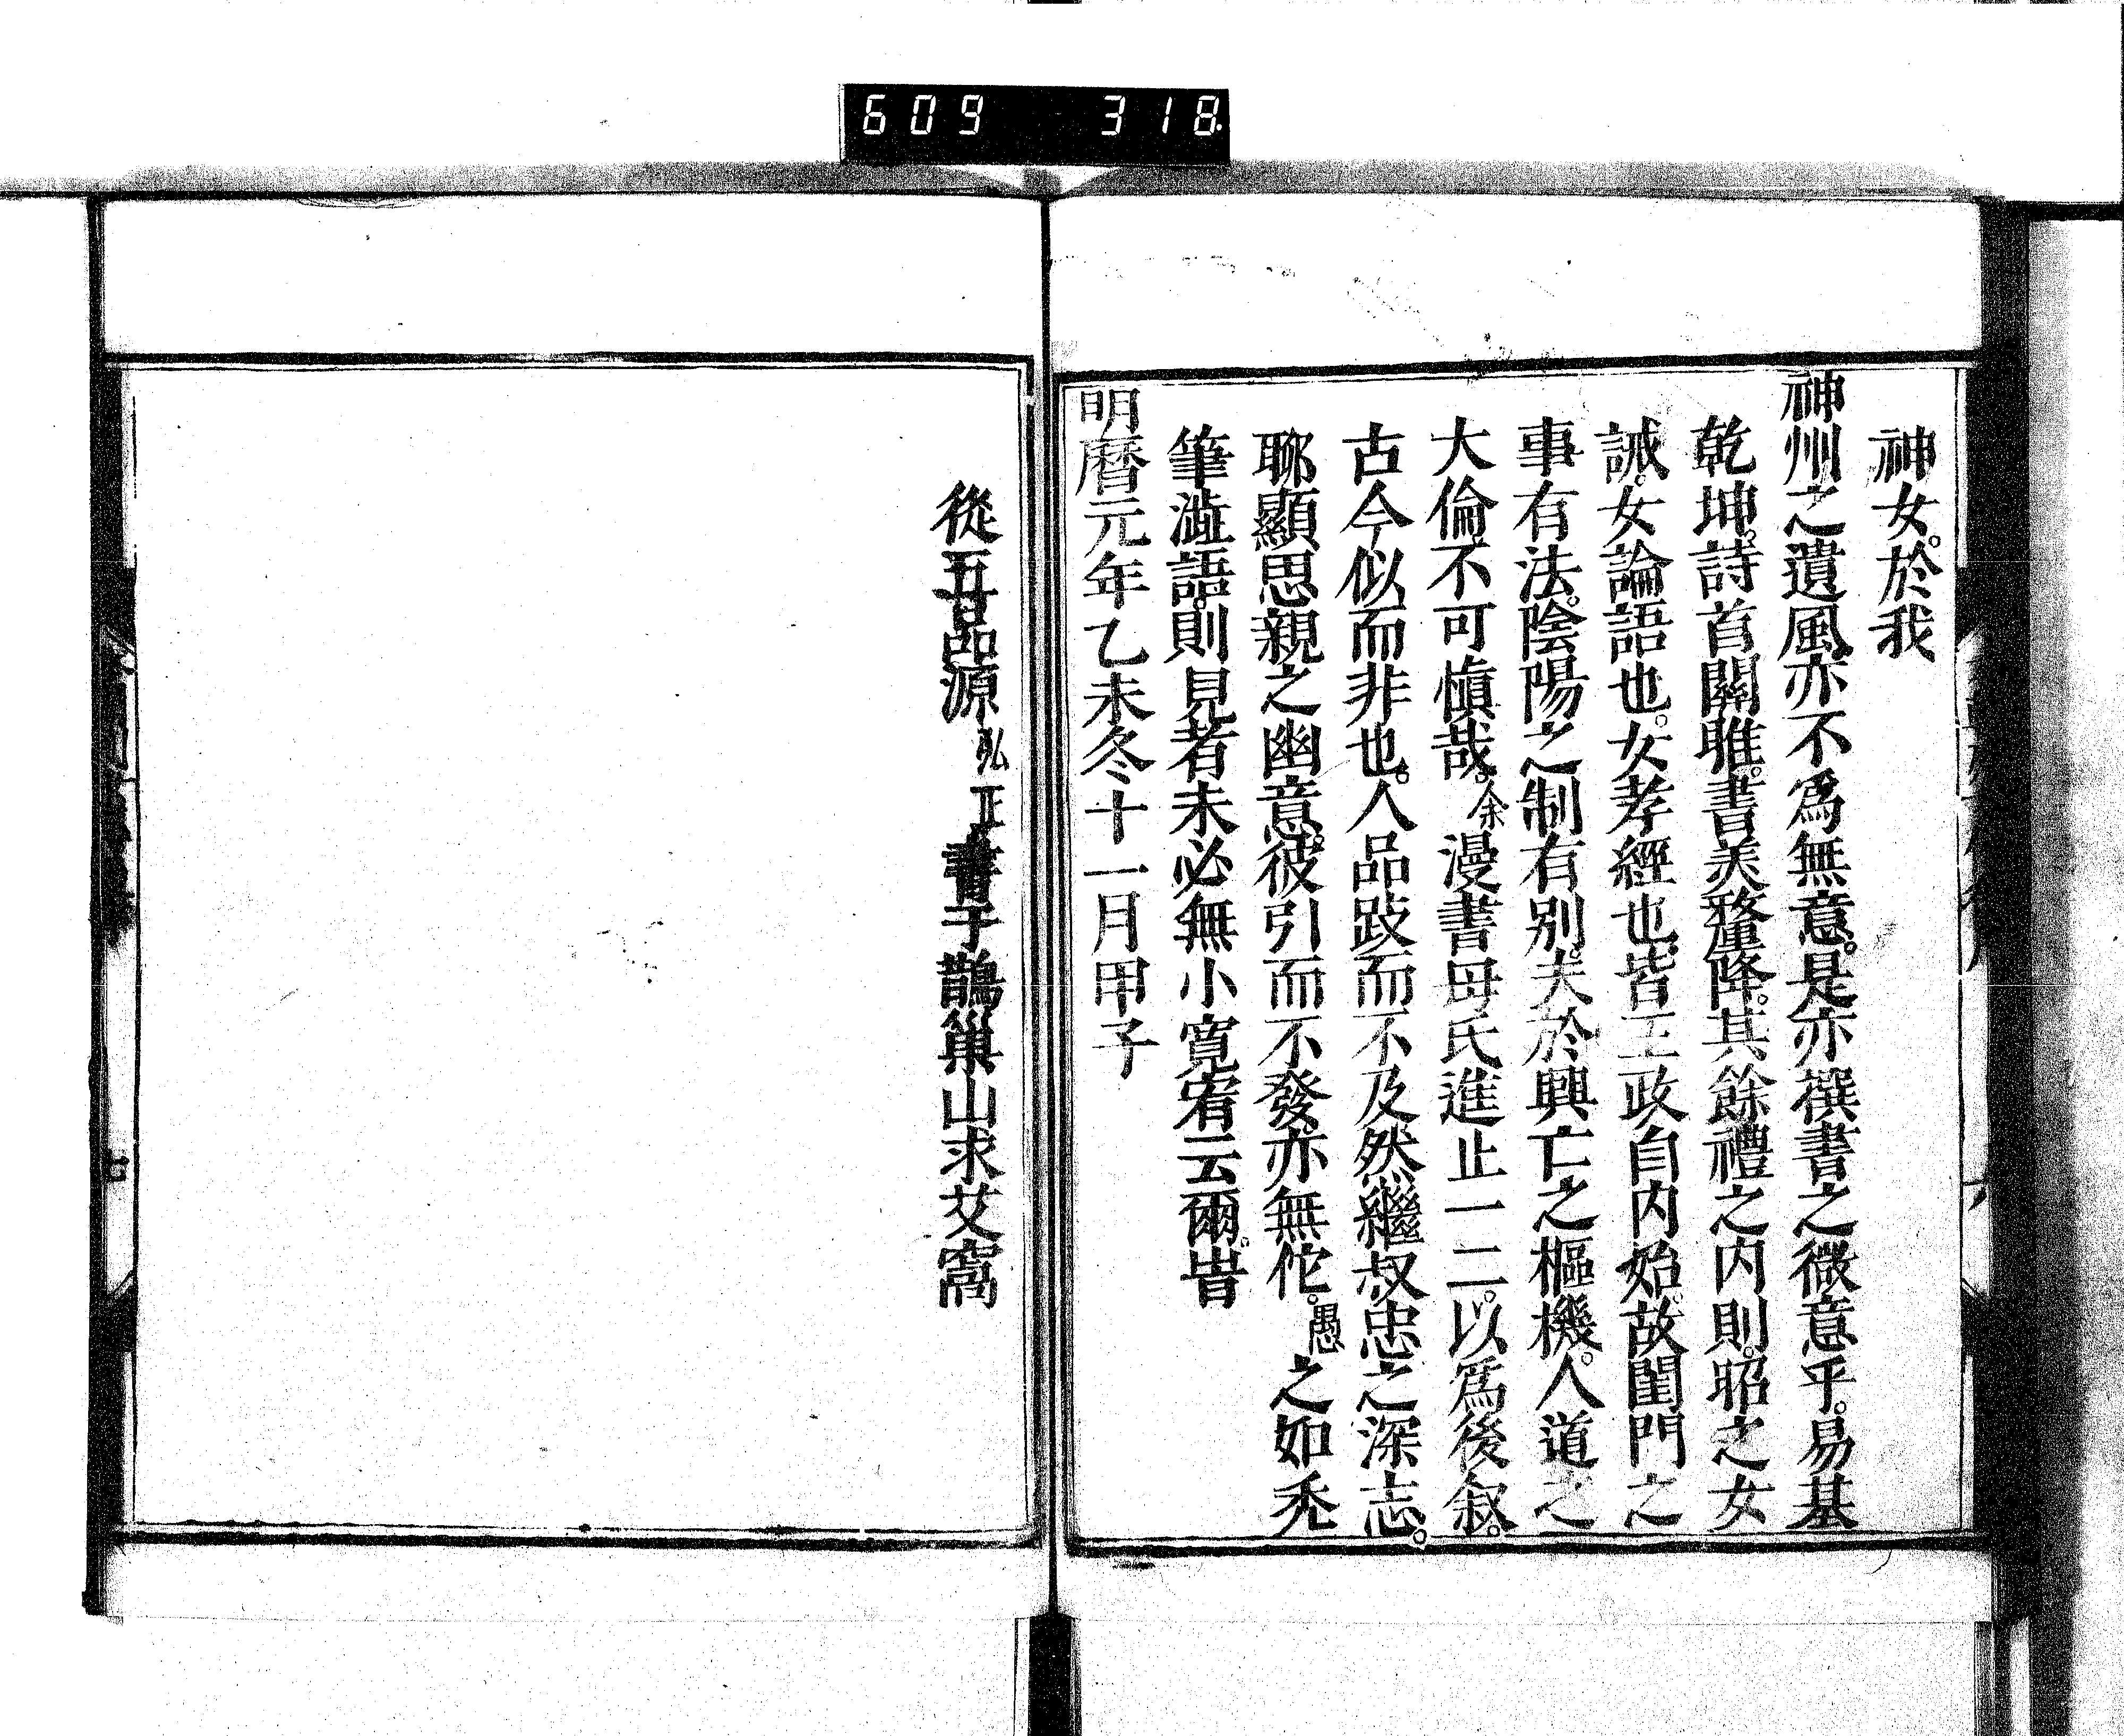 609 318
神女。於我
神州之遺風亦不爲無意。是亦撰書之微意乎。易基
乾坤。詩首關雎。書美釐降。其餘禮之内則。昭之女
誡。女論語也。女孝經也。皆王政自内始。故閨門之
事有法。陰陽之制有別。夫於興亡之樞機。人道之
大倫。不可愼哉。余漫書母氏進止一二。以爲後叙。
古今似而非也。人品跂而不及。然繼叔忠之深志。
聊顯思親之幽意。彼引而不發。亦無佗。愚之如禿
筆澁語。則見者未必無小寛宥云爾。旹
明曆元年乙未冬十一月甲子
從五品源弘正書于鵲巢山求艾窩
七